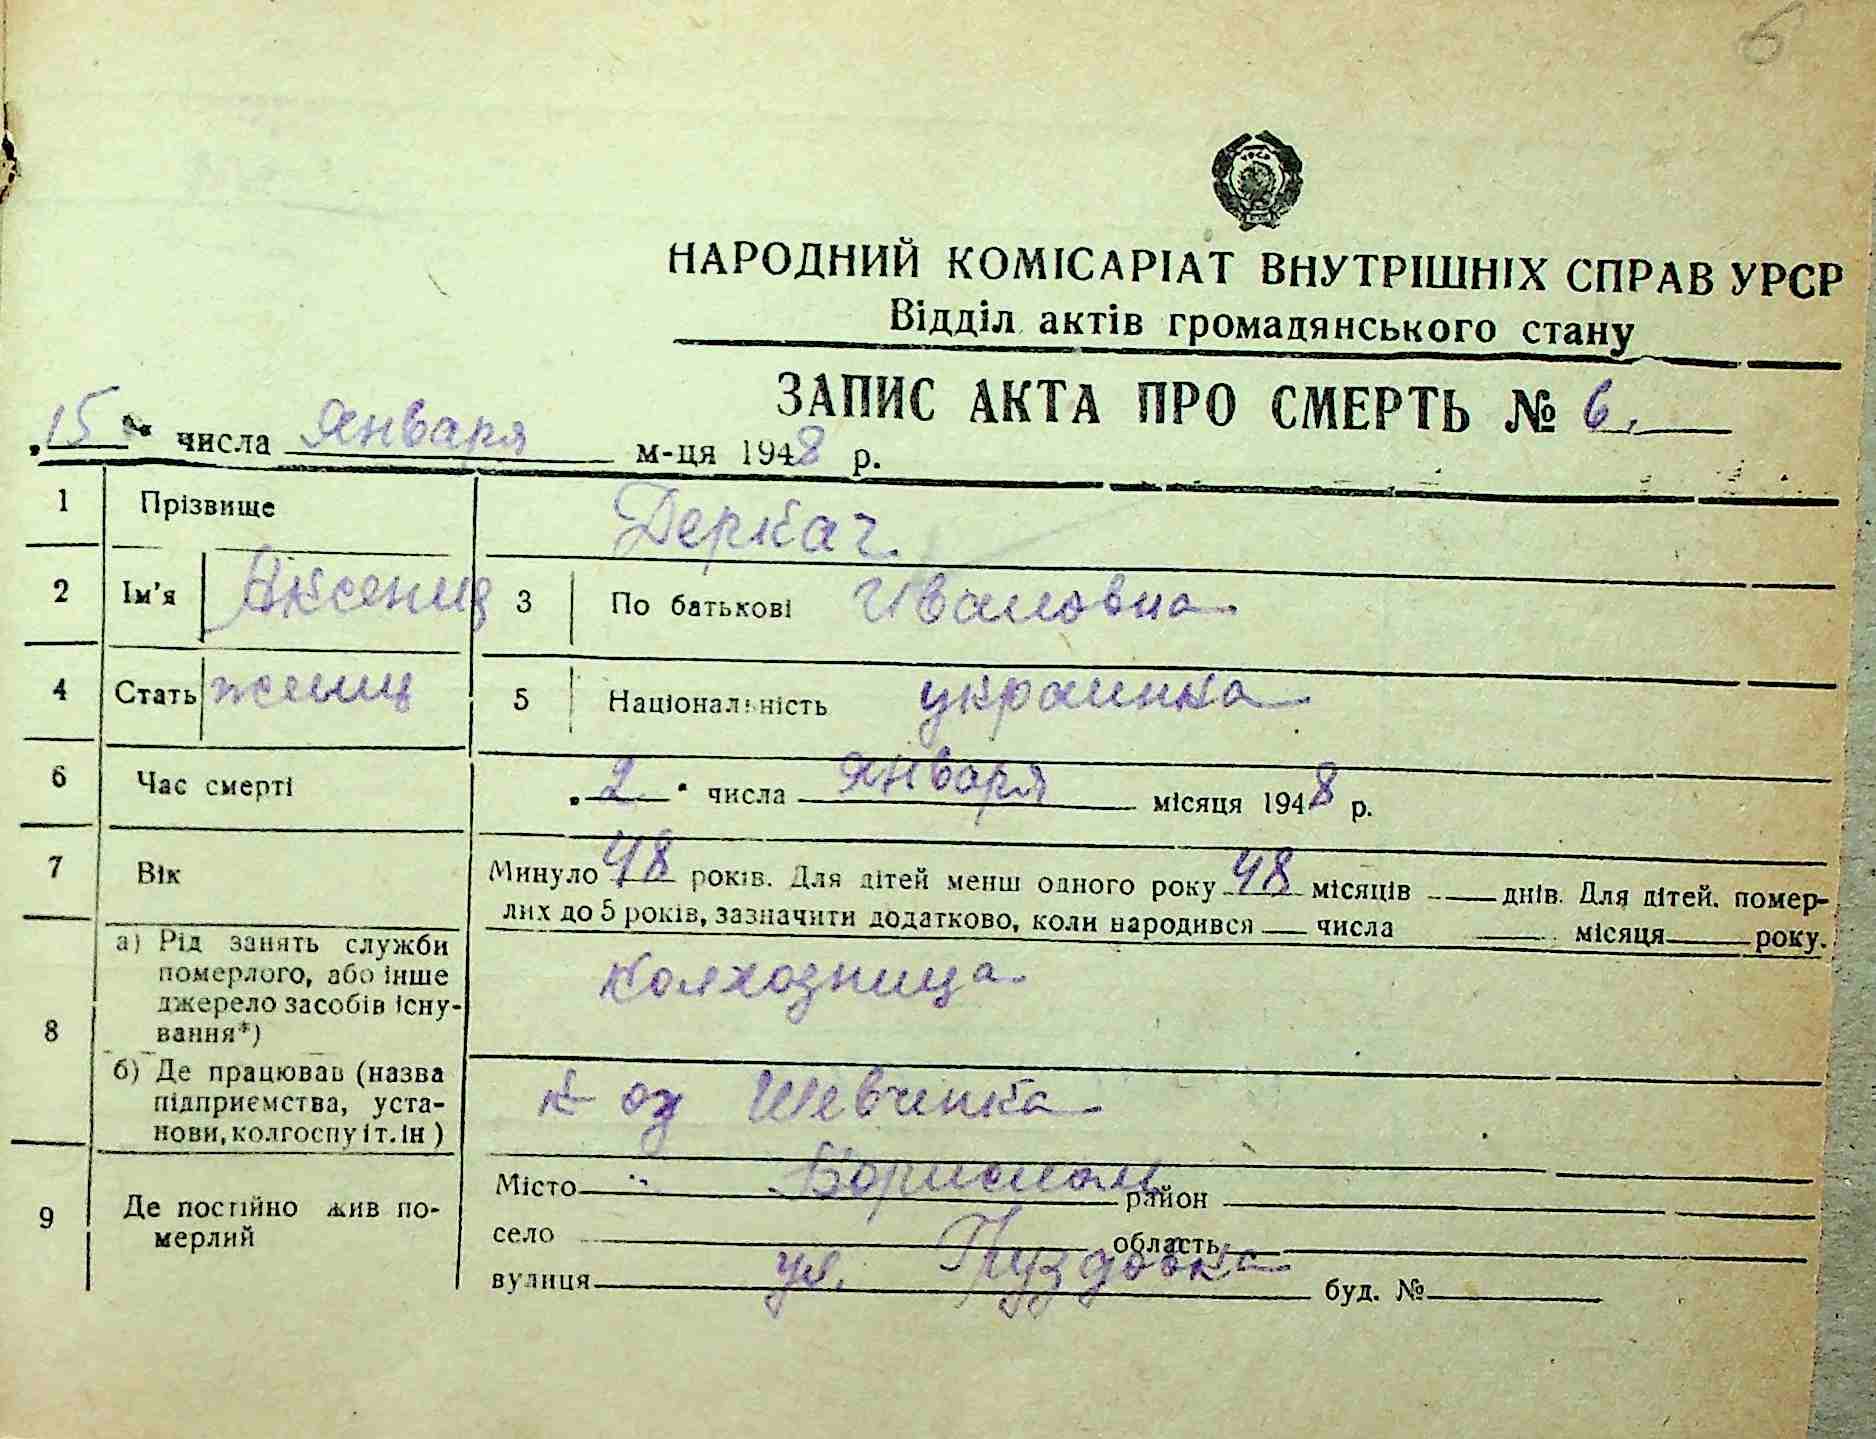 6
НАРОДНИЙ КОМІСАРІАТ ВНУТРІШНІХ СПРАВ УРСР
Відділ актів громадянського стану
ЗАПИС АКТА ПРО СМЕРТЬ № 6.
15 числа Января м-ця 1948 р.
1 Прізвище Деркач
2 Ім'я Аксения 3 По батькові Ивановна
4 Стать женщ 5 Національність украинка
6 Час смерті „2" числа Января місяця 1948 р.
7 Вік Минуло 48 років. Для дітей менш одного року 48 місяців — днів. Для дітей. помер-
лих до 5 років, зазначити додатково, коли народився — числа — місяця — року.
8 а) Рід занять служби
померлого, або інше
джерело засобів існу-
вання*)
Колхозница
б) Де працював (назва
підприємства, уста-
нови, колгоспу і т. ін)
к-оз Шевченка
9 Де постійно жив по-
мерлий
Місто район
село область
вулиця ул. буд. №